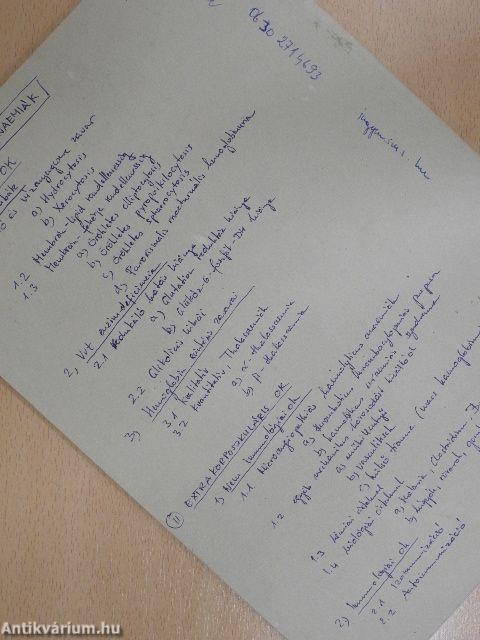 0630 2714693
NAEMIÁK
OK
só és vízanyagcsere zavar
a) Hydrocytosis
b) Xerocytosis
1.2 Membrán-lipid rendellenesség
1.3 Membrán-fehérje rendellenesség
a) Örökletes elliptocytosis
b) Örökletes pyropoikilocytosis
c) Örökletes spherocytosis
d) Paroxismalis nocturnális hemoglobinuria
2, Vvt enzimdeficiencia
2.1 Redukáló hatás hiánya
a) Glutation reduktáz hiánya
b) Glükóz-6-foszfát-DH hiánya
2.2 Glikolízis zavarai
3) Hemoglobin szintézis zavarai
3.1 Kvalitatív
3.2 Kvantitatív, Thalassemiák
a) α-thalassaemia
b) β-thalassaemia
II EXTRAKORPOSZKULÁRIS OK
1) Nem immunológiai ok
1.1 Microangiopathiás haemolyticus anaemiák
a) thrombotikus thrombocytopeniás purpura
b) haemolitikus uraemiás syndroma
1.2 Egyéb mechanikus károsodás
a) műbillentyű
b) vasculitisek
c) külső trauma (mars haemoglobinuria
1.3 Kémiai oldatok
1.4 biológiai
a) Malaria, Clostridium
b) kígyó, rovarok,
2) Immunológiai ok
2.1 Izoimmunizáció
2.2 Autoimmunizáció
Antikvárium.hu